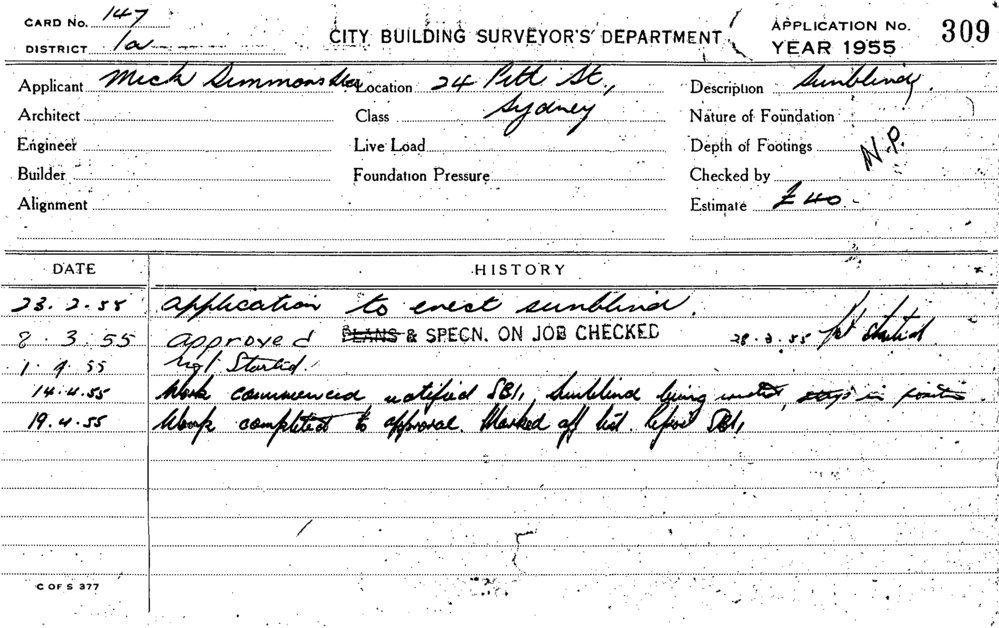 CARD No. 147
DISTRICT 1a
CITY BUILDING SURVEYOR'S DEPARTMENT
APPLICATION No. 309
YEAR 1955
Applicant Mick Simmons Location 24 Pitt St., Description Sunblind
Architect Class Sydney Nature of Foundation
Engineer Live Load Depth of Footings N.P.
Builder Foundation Pressure Checked by
Alignment Estimate £40.-
DATE HISTORY
23.2.55 application to erect sunblind.
8.3.55 approved PLANS & SPECN. ON JOB CHECKED 28.3.55 not started
1.4.55 not Started.
14.4.55 Work commenced notified SBI, Sunblind being erected, in position
19.4.55 Work completed to approval. Marked off list. SBI,
C OF S 377